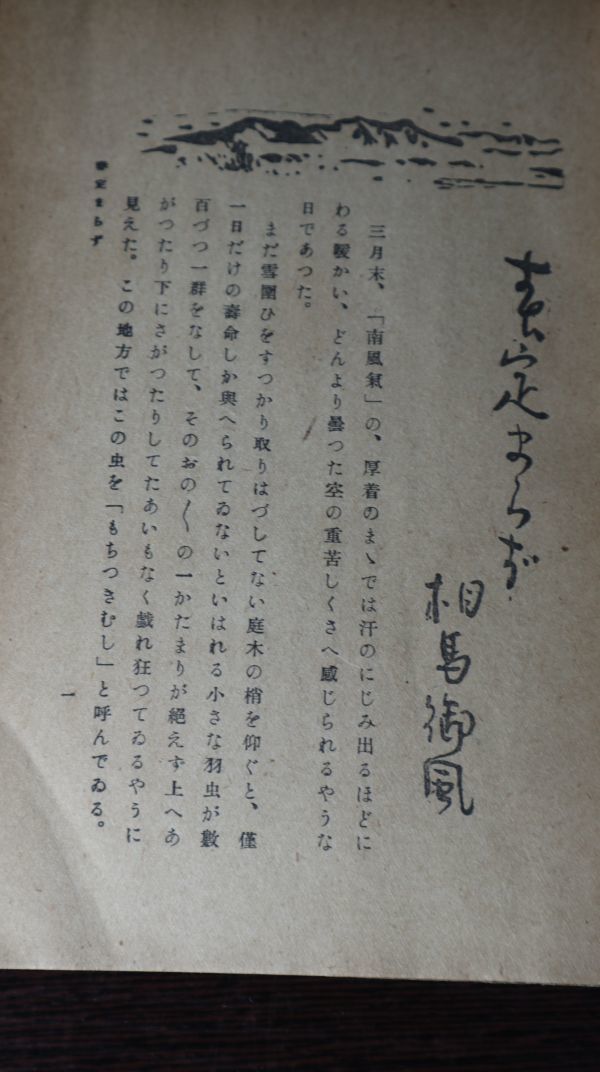 春定まらず
相馬御風
三月末、「南風氣」の、厚着のまゝでは汗のにじみ出るほどに
わる暖かい、どんより曇つた空の重苦しくさへ感じられるやうな
日であつた。
まだ雪圍ひをすつかり取りはづしてない庭木の梢を仰ぐと、僅
一日だけの壽命しか與へられてゐないといはれる小さな羽虫が數
百づつ一群をなして、そのおの〳〵の一かたまりが絕えず上へあ
がつたり下にさがつたりしてたあいもなく戯れ狂つてゐるやうに
見えた。この地方ではこの虫を「もちつきむし」と呼んでゐる。
春定まらず
一